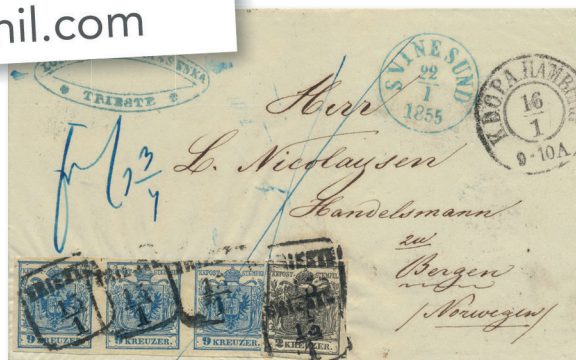 nil.com
TRIESTE
SVINESUND
22
1
1855
K.D.O.P.A. HAMBURG
16
1
9-10A
Herr
L. Nicolaysen
Handelsmann
zu
Bergen
(Norwegen)
9 KREUZER.
9 KREUZER.
9 KREUZER.
2 KREUZER.
TRIESTE
13
1